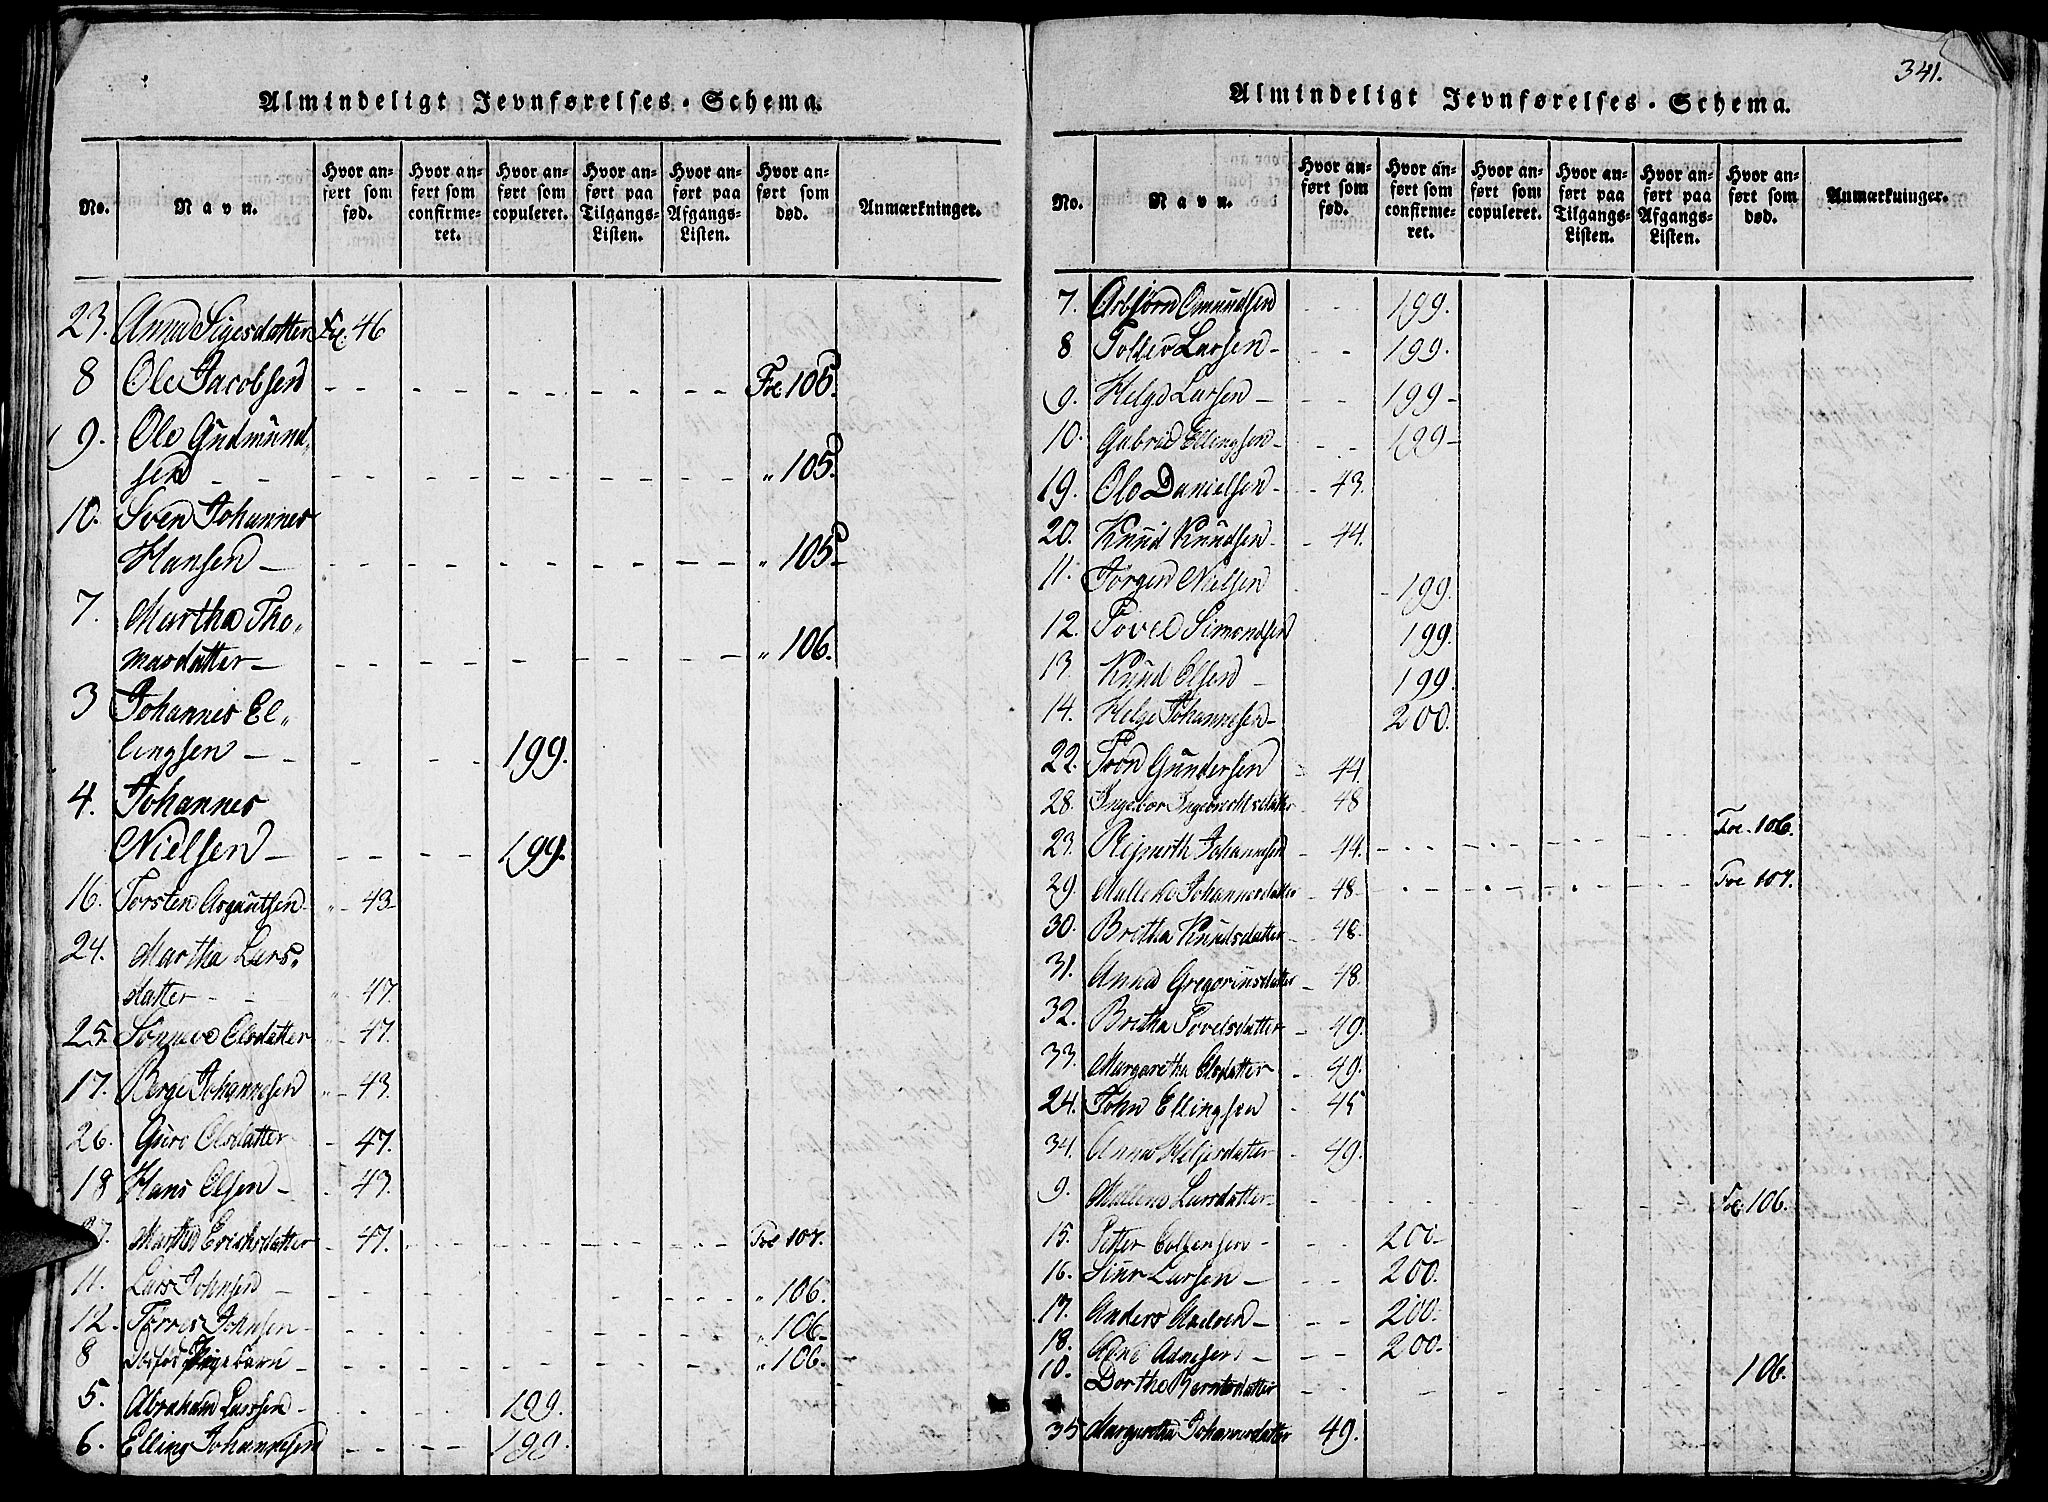 Almindeligt Jevnførelses-Schema.
No.
Navn.
Hvor an-
ført som
fød.
Hvor an-
ført som
confirme-
ret.
Hvor an-
ført som
copuleret.
Hvor an-
ført paa
Tilgangs-
Listen.
Hvor an-
ført paa
Afgangs-
Listen.
Hvor an-
ført som
død.
Anmærkninger.
23. Anna Sigesdatter Fol. 46
8 Ole Jacobsen - - - - - - Fol 105.
9. Ole Gudmund„
sen - - - - - - - „ 105.
10. Sven Johannes
Hansen - - - - - - - „ 105.
7. Martha Tho„
masdatter - - - - - - - „ 106.
3 Johannes El„
lingsen - - - - 199.
4. Johannes
Nielsen - - - - 199.
16. Torsten Asgautsen „ - 43
24. Martha Lars„
datter - - „ - 47.
25. Sønneve Olsdatter „ - 47.
17. Berge Johannesen „ - 43.
26. Guro Olsdatter - 47.
18 Hans Olsen - - 43.
27. Martha Erichsdatter - 47. - - - - - Fol 107.
11. Lars Johnsen - - - - - - „ 106.
12. Tørres Johnsen - - - - - - „ 106.
8 Pigebarn - - - - - - „ 106.
5. Abraham Larsen - - - 199.
6. Elling Johannesen - - - 199.
341.
Almindeligt Jevnførelses-Schema.
No.
Navn.
Hvor an-
ført som
fød.
Hvor an-
ført som
confirme-
ret.
Hvor an-
ført som
copuleret.
Hvor an-
ført paa
Tilgangs-
Listen.
Hvor an-
ført paa
Afgangs-
Listen.
Hvor an-
ført som
død.
Anmærkninger.
7. Asbjørn Omundsen - - - 199.
8 Tollev Larsen - - - 199.
9. Helge Larsen - - - 199 -
10. Gabriel Ellingsen - - - 199 -
19. Ole Danielsen - - 43.
20. Knud Knudsen - - 44.
11. Jørgen Nielsen - 199.
12. Povel Simonsen 199.
13. Knud Olsen - 199.
14. Helge Johannesen - 200.
22. Sven Gundersen - 44.
28. Ingebor Ingebrechtsdatter - 48
23. Johannesen - 44. - - - - Fol. 106.
29 Mallene Johannesdatter - 48. - - - - Fol 107.
30. Britha Knudsdatter - 48.
31. Anna Gregoriusdatter - 48.
32. Britha Povelsdatter - 49.
33. Margaretha Olsdatter - 49.
24. John Ellingsen - 45
34. Anna Helgesdatter - 49.
9. Mallene Larsdatter - - - - - - Fol. 106.
15. Petter - - - 200 -
16. Larsen - - - 200.
17. Anders - - - 200.
18. - - - 200.
10. Dorthe Berntsdatter - - - - - - 106.
35 Margaretha Johannesdatter 49.